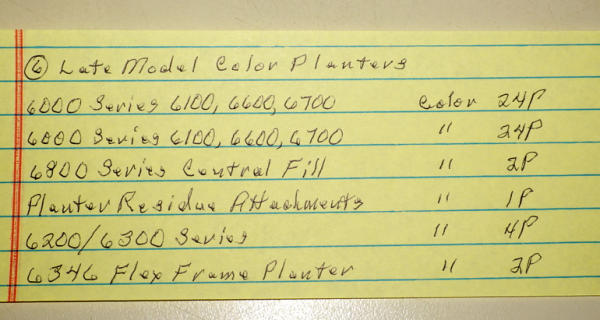 ⑥ Late Model Color Planters
6000 Series 6100, 6600, 6700 Color 24P
6000 Series 6100, 6600, 6700 " 24P
6800 Series Central Fill " 2P
Planter Residue Attachments " 1P
6200/6300 Series " 4P
6346 Flex Frame Planter " 2P